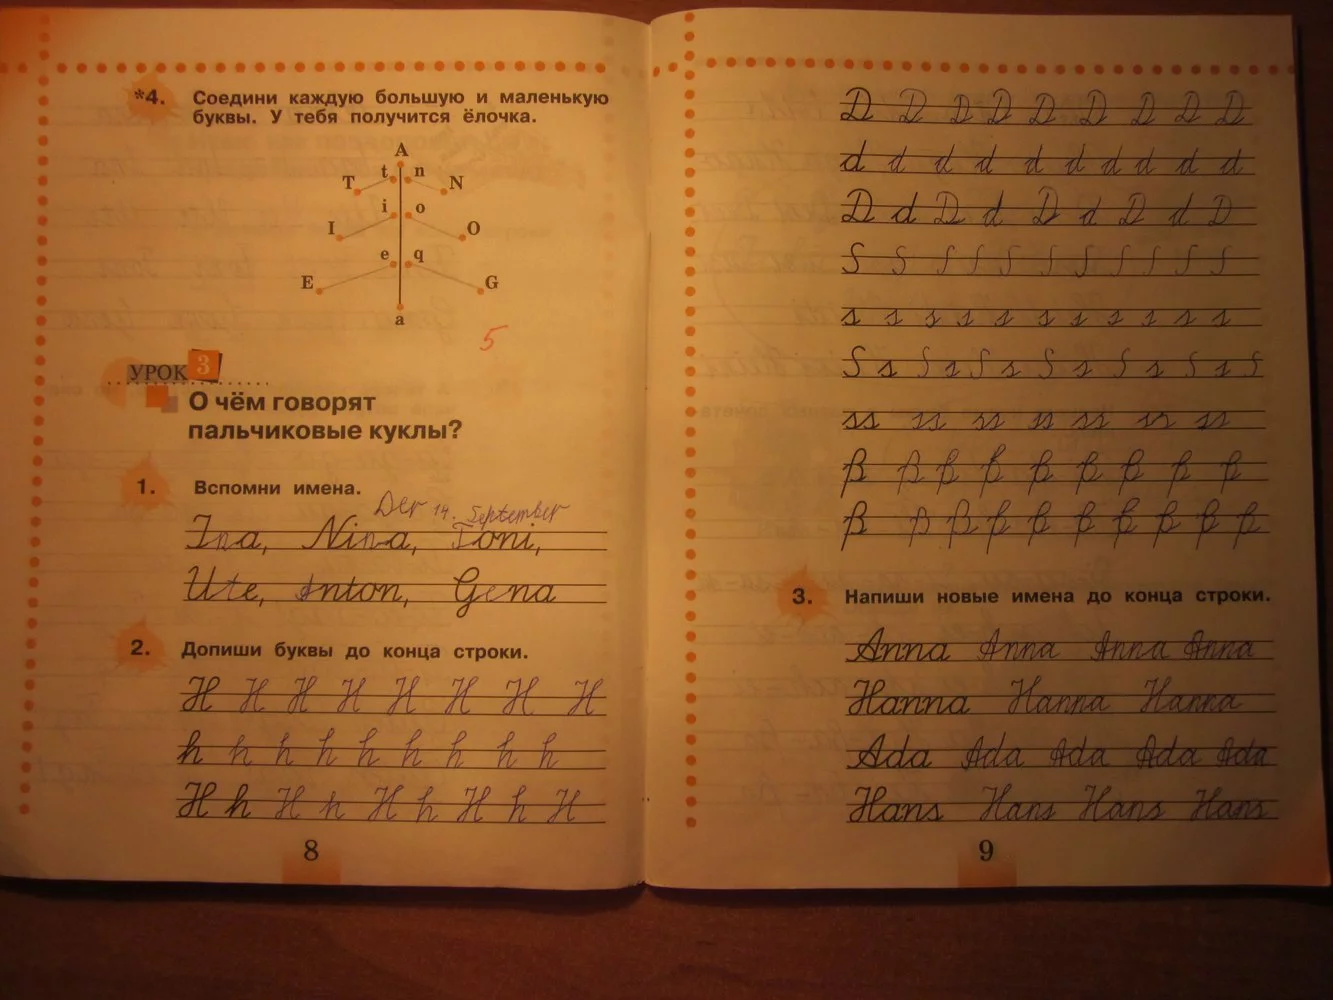 *4. Соедини каждую большую и маленькую
буквы. У тебя получится ёлочка.
A
t n
T N
i o
I O
e q
E G
a
5
УРОК 3
О чём говорят
пальчиковые куклы?
1. Вспомни имена.
Der 14. September
Ina, Nina, Toni,
Ute, Anton, Gena
2. Допиши буквы до конца строки.
H H H H H H H H
h h h h h h h h h
H h H h H h H h H
8
D D D D D D D D D
d d d d d d d d d
D d D d D d D d D
S S S S S S S S S S
s s s s s s s s s s
S s S s S s S s S s S
ss ss ss ss ss ss ss
ß ß ß ß ß ß ß ß ß
ß ß ß ß ß ß ß ß ß ß
3. Напиши новые имена до конца строки.
Anna Anna Anna Anna
Hanna Hanna Hanna
Ada Ada Ada Ada Ada
Hans Hans Hans Hans
9